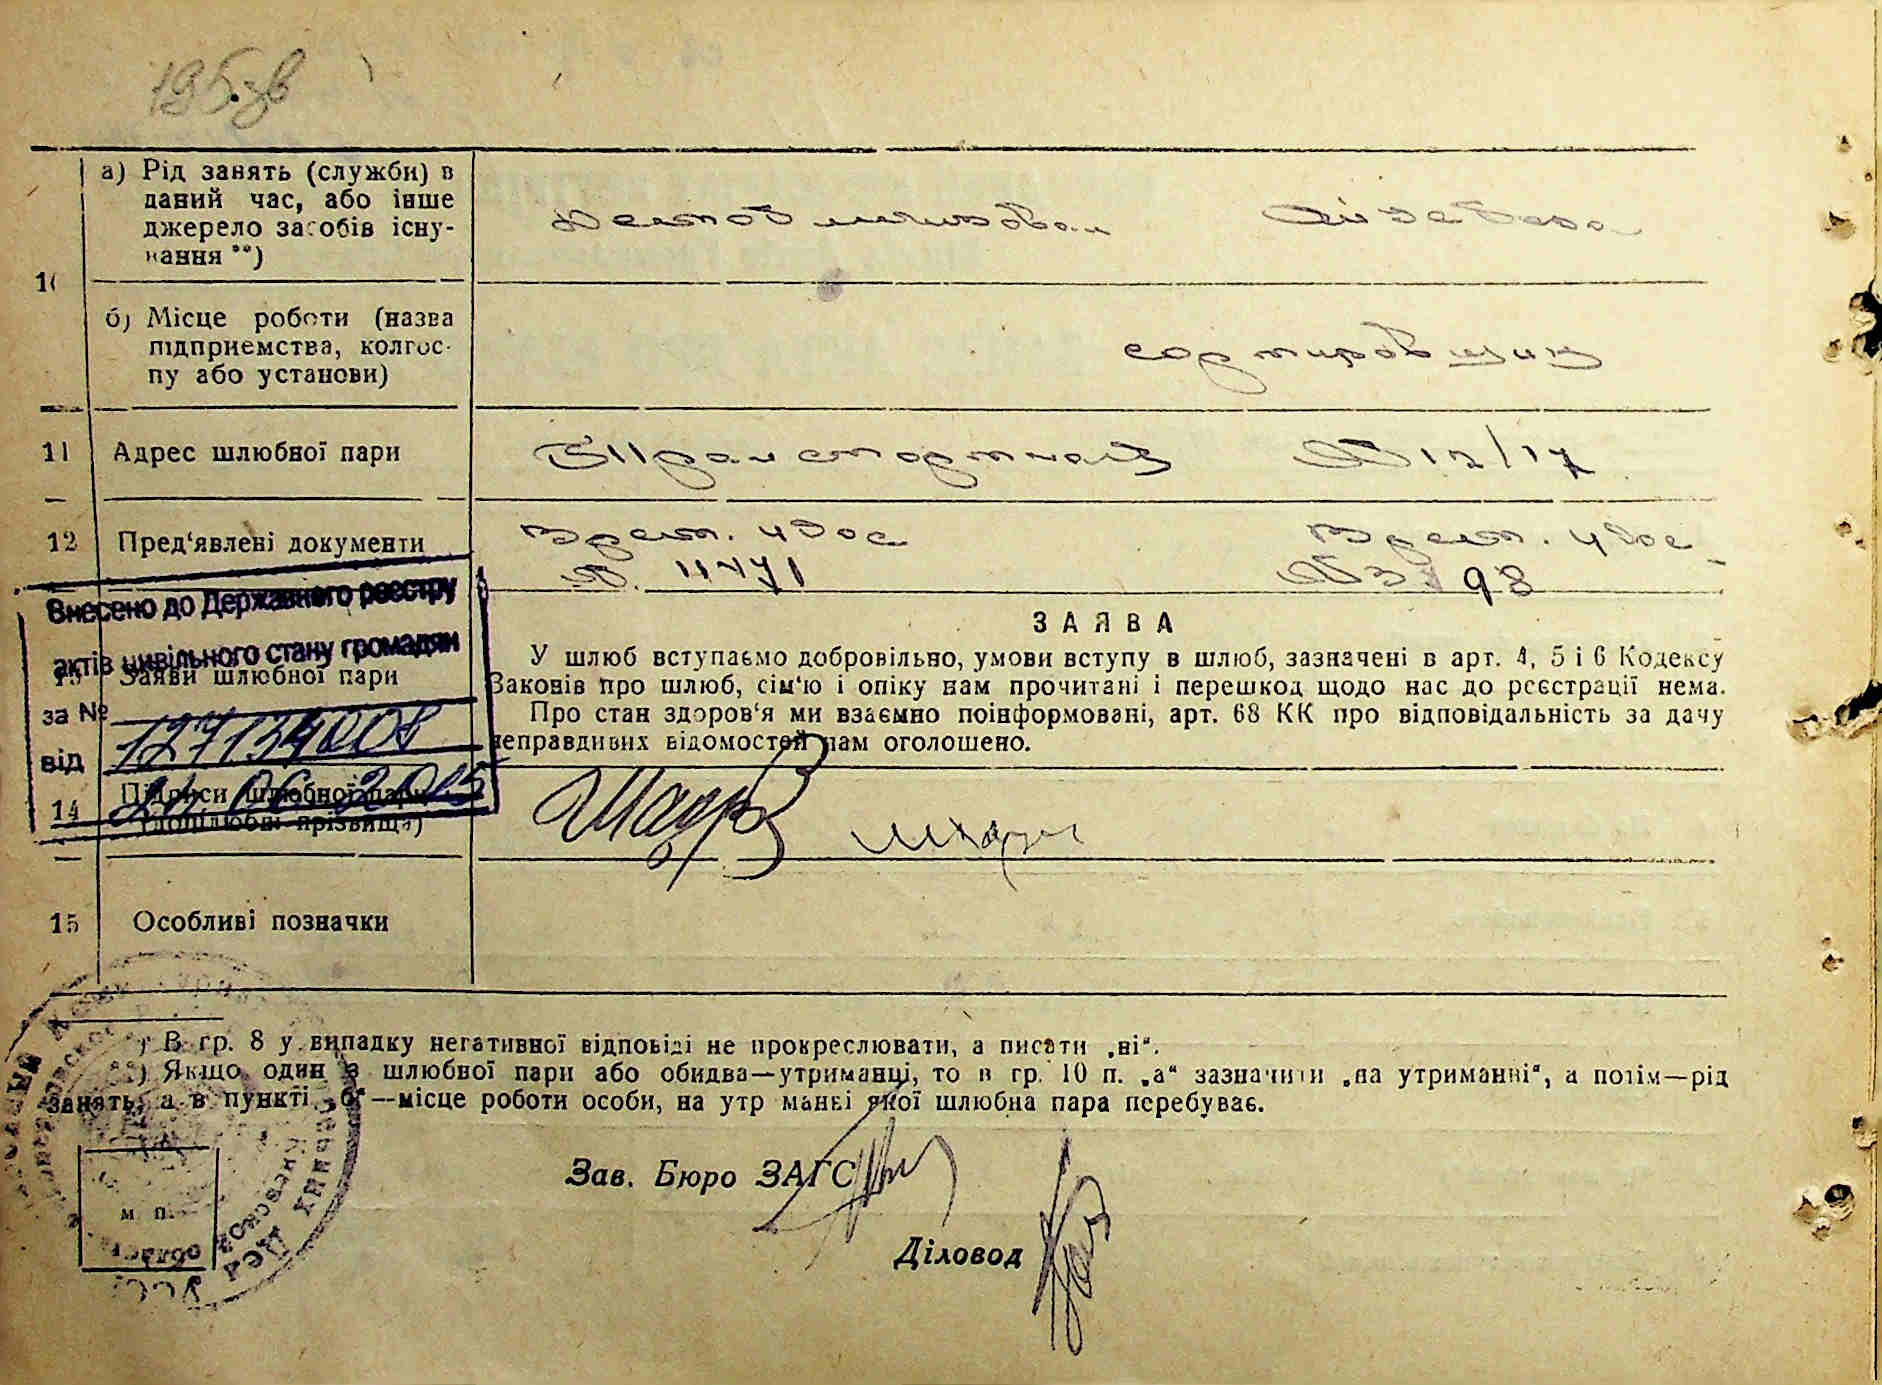 195.зв
10
а) Рід занять (служби) в
даний час, або інше
джерело засобів існу-
вання **)
Демобилизован
б) Місце роботи (назва
підприємства, колгос-
пу або установи)
сортировщик
11 Адрес шлюбної пари
Транспортная № 12/17
12 Пред‘явлені документи
Врем. удос Врем. удос
№ 398
Внесено до Державного реєстру
актів цивільного стану громадян
за № 127134008
від 24 06 2015
13 Заяви шлюбної пари
ЗАЯВА
У шлюб вступаємо добровільно, умови вступу в шлюб, зазначені в арт. 4, 5 і 6 Кодексу
Законів про шлюб, сім‘ю і опіку нам прочитані і перешкод щодо нас до реєстрації нема.
Про стан здоров‘я ми взаємно поінформовані, арт. 68 КК про відповідальність за дачу
неправдивих відомостей нам оголошено.
14 Підписи шлюбної пари
(дошлюбні прізвища)
15 Особливі позначки
*) В гр. 8 у випадку негативної відповіді не прокреслювати, а писати „ні“.
**) Якщо один з шлюбної пари або обидва—утриманці, то в гр. 10 п. „а“ зазначити „на утриманні“, а потім—рід
занять, а в пункті „б“—місце роботи особи, на утриманні якої шлюбна пара перебуває.
Зав. Бюро ЗАГС
м. п.
Діловод